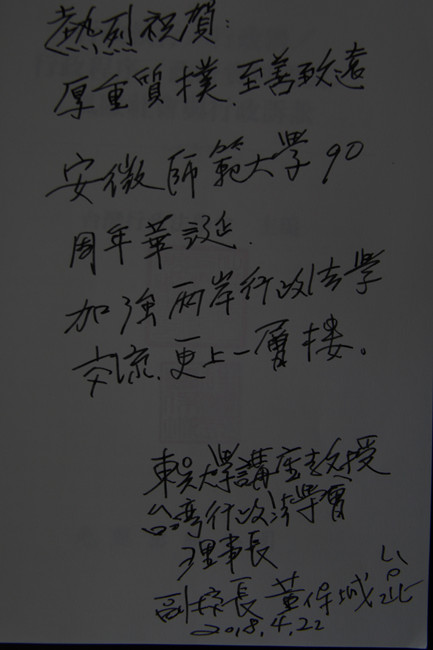 熱烈祝賀：
厚重質樸、至善致遠
安徽師範大學90
周年華誕.
加強兩岸行政法學
交流、更上一層樓。
東吳大學講座教授
台灣行政法學會
理事長
副校長 董保城
2018.4.22